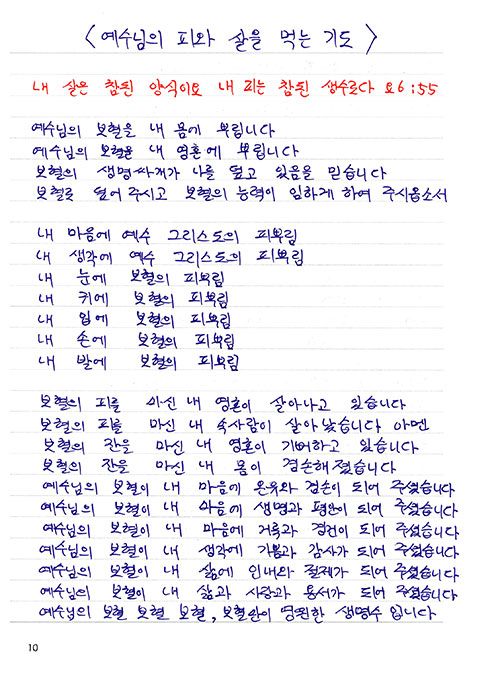 〈 예수님의 피와 살을 먹는 기도 〉
내 살은 참된 양식이요 내 피는 참된 생수로다 요6:55
예수님의 보혈을 내 몸에 뿌립니다
예수님의 보혈을 내 영혼에 뿌립니다
보혈의 생명싸개가 나를 덮고 있음을 믿습니다
보혈로 덮어 주시고 보혈의 능력이 임하게 하여 주시옵소서
내 마음에 예수 그리스도의 피뿌림
내 생각에 예수 그리스도의 피뿌림
내 눈에 보혈의 피뿌림
내 귀에 보혈의 피뿌림
내 입에 보혈의 피뿌림
내 손에 보혈의 피뿌림
내 발에 보혈의 피뿌림
보혈의 피를 마신 내 영혼이 살아나고 있습니다
보혈의 피를 마신 내 속사람이 살아났습니다 아멘
보혈의 잔을 마신 내 영혼이 기뻐하고 있습니다
보혈의 잔을 마신 내 몸이 겸손해졌습니다
예수님의 보혈이 내 마음에 온유와 겸손이 되어 주셨습니다
예수님의 보혈이 내 마음에 생명과 평안이 되어 주셨습니다
예수님의 보혈이 내 마음에 거룩과 경건이 되어 주셨습니다
예수님의 보혈이 내 생각에 기쁨과 감사가 되어 주셨습니다
예수님의 보혈이 내 삶에 인내와 절제가 되어 주셨습니다
예수님의 보혈이 내 삶과 사랑과 용서가 되어 주셨습니다
예수님의 보혈 보혈 보혈, 보혈만이 영원한 생명수 입니다
10